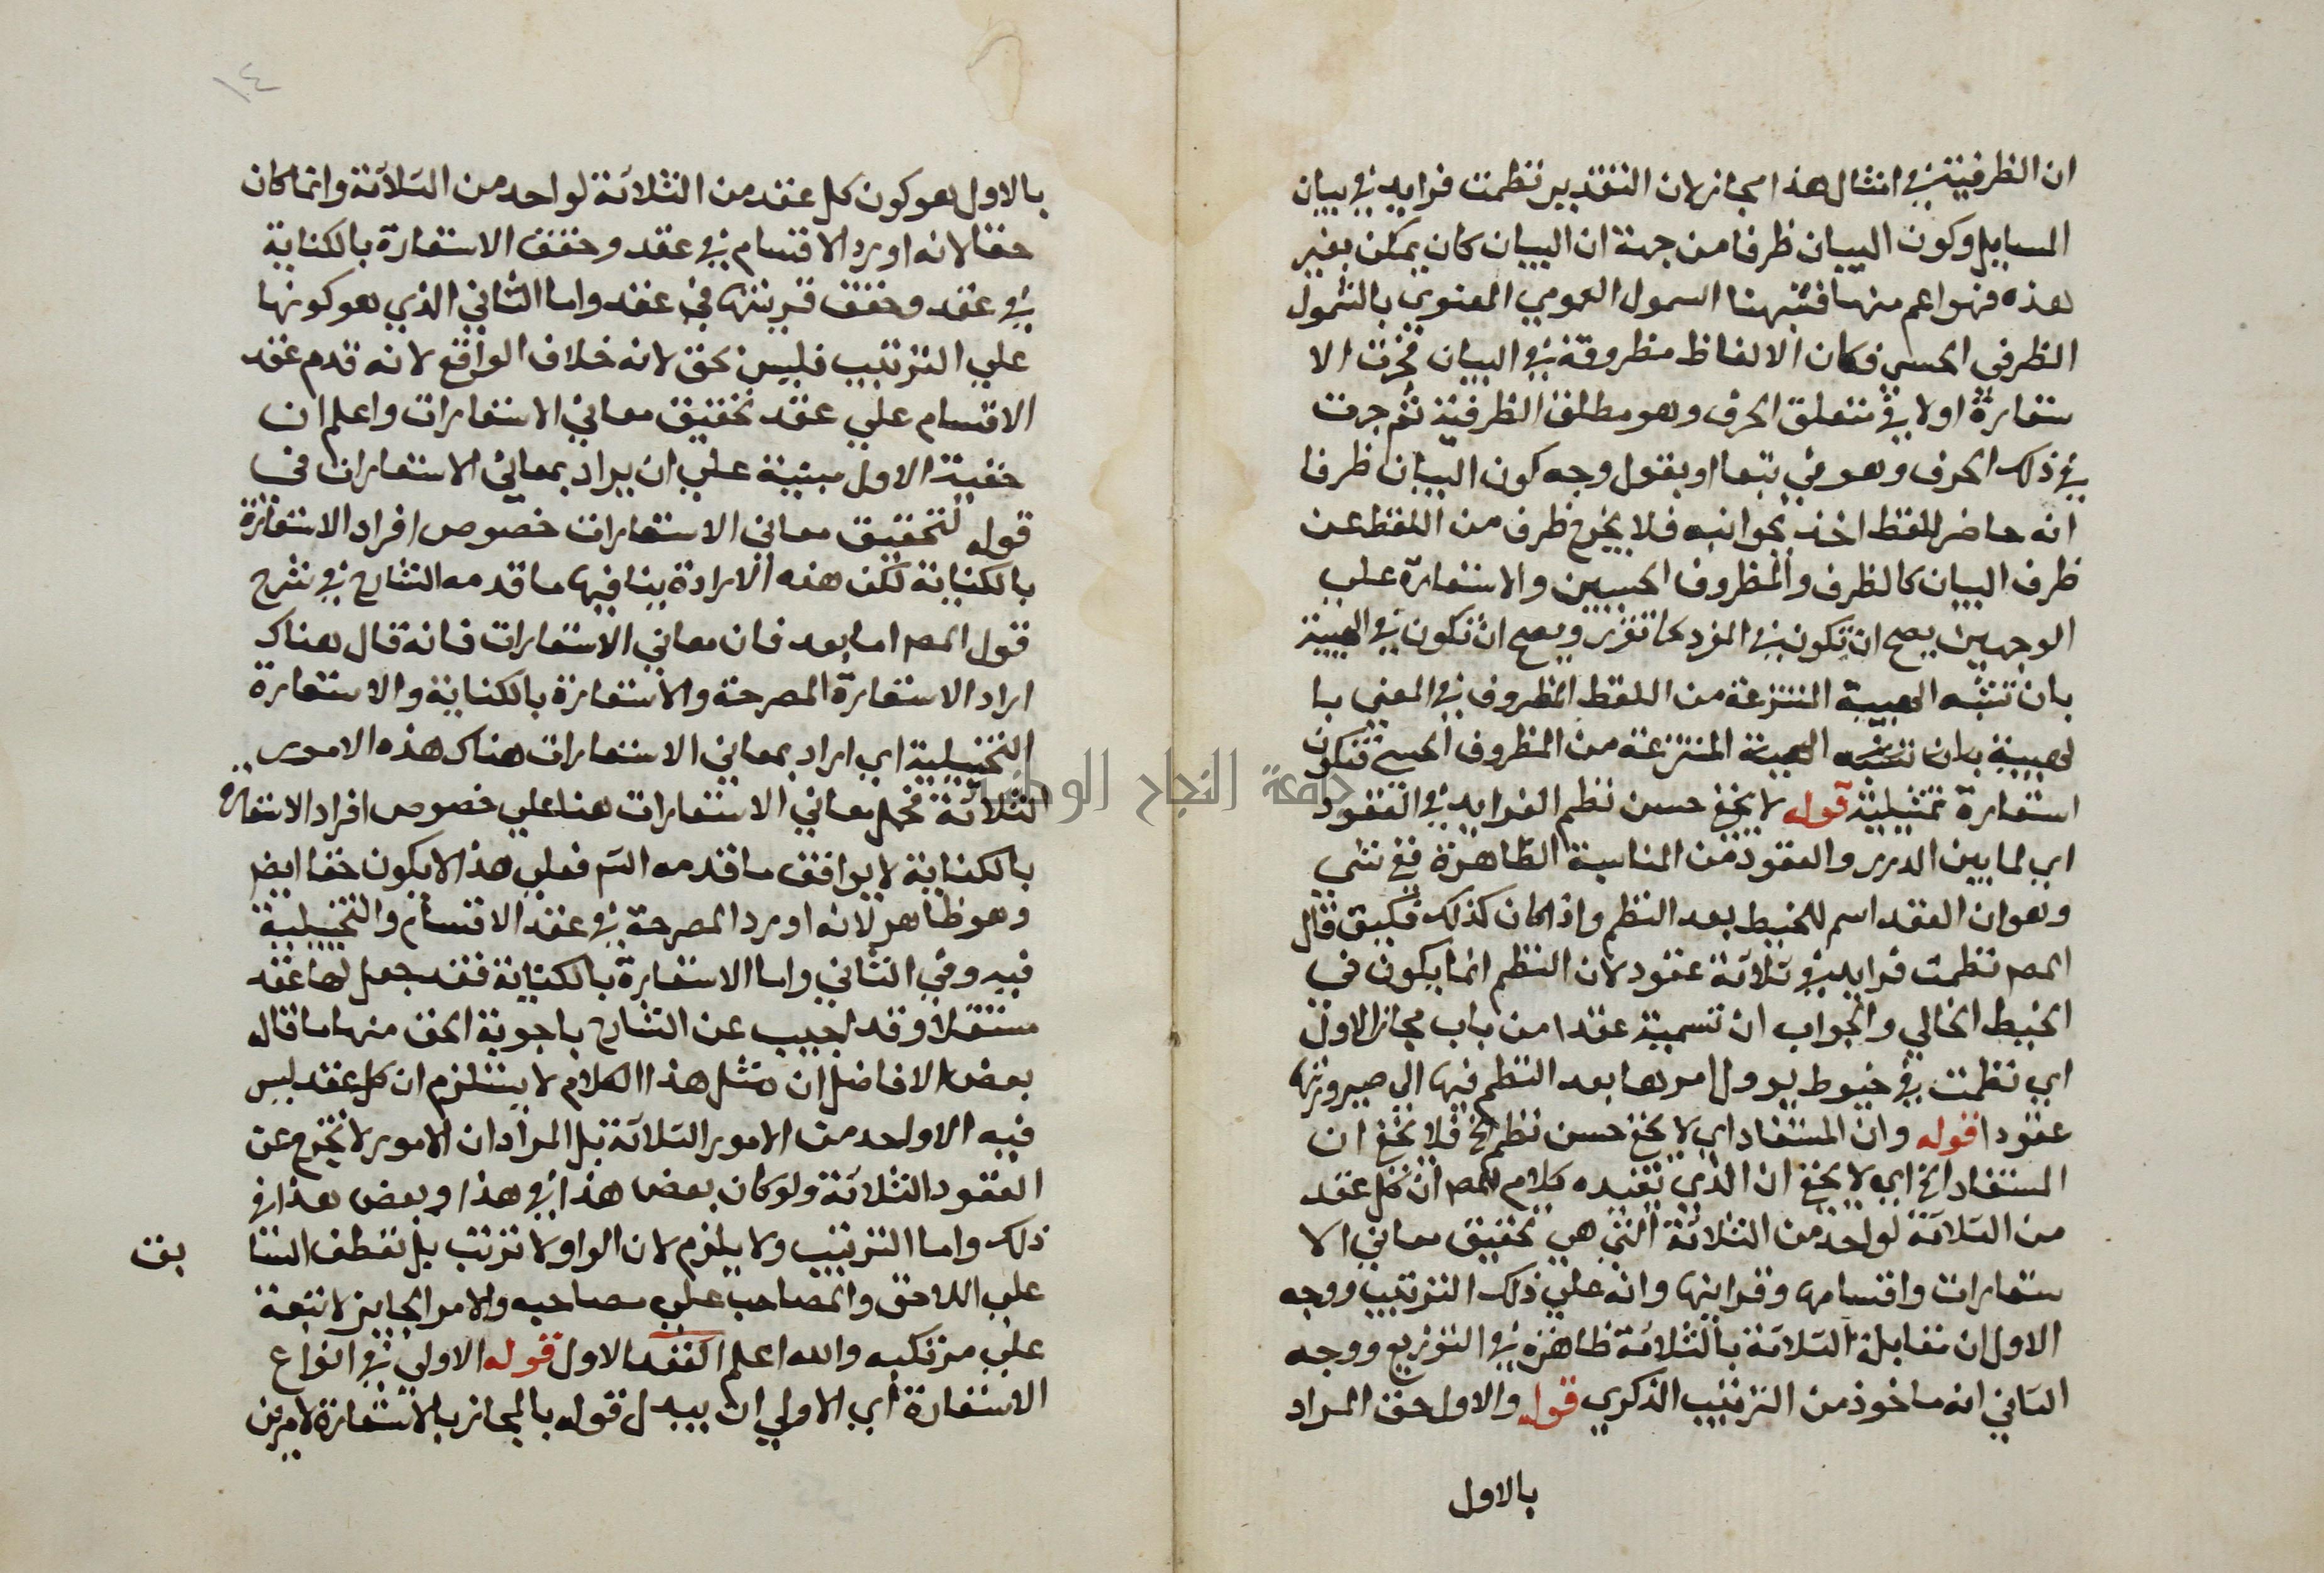 ان الظرفية في امثال هذا مجاز لان التقدير نظمت فرايد في بيان
المسايل وكون البيان ظرفا من جهة ان البيان كان يمكن بغير
هذه فهو اعم منها فشبهنا السمول العمومي المعنوي بالشمول
الظرفي الحسي فكان الالفاظ مظروفة في البيان فجرت الا
ستعارة اولا في متعلق الحرف وهو مطلق الظرفية ثم جرت
في ذلك الحرف وهو في تبعا او يقول وجه كون البيان ظرفا
انه حاضر للفظ اخذ بجوانبه فلا يخرج ظرف من اللفظ عن
ظرف البيان كالظرف والمظروف الحسيين والاستعارة علي
الوجهين يصح ان تكون في المفرد كما تقرر ويصح ان تكون في الهيية
بان تشبه الهيية المنتزعة من اللفظ المظروف في المعني با
لهيية بان تشبه الهيية المنتزعة من المظروف الحسي فتكون
استعارة تمثيلية قوله لا يخفي حسن نظم الفرايد في العقود
اي لما بين الدرر والعقود من المناسبة الظاهرة فغ شي
وهو ان العقد اسم للخيط بعد النظم واذا كان كذلك فكيف قال
المص نظمت فرايد في ثلاثة عقود لان النظم انما يكون في
الخيط الخالي والجواب ان تسمية عقدا من باب مجاز الاول
اي نظمت في خيوط يوول امرها بعد النظم فيها الي صيرورتها
عقودا قوله وان المستفاد اي لا يخفي حسن نظم الخ فلا يخفي ان
المستفاد الخ اي لا يخفي ان الذي تفيده كلام المص ان كل عقد
من الثلاثة لواحد من الثلاثة التي هي تحقيق معاني الا
ستعارات واقسامها وقراينها وانه علي ذلك الترتيب ووجه
الاول ان مقابلة الثلاثة بالثلاثة ظاهرة في التوزيع ووجه
الثاني انه ماخوذ من الترتيب الذكري قوله والاول حق المراد
بالاول
١٤
بالاول هو كون كل عقد من الثلاثة لواحد من الثلاثة وانما كان
حقا لانه اورد الاقسام في عقد وحقق الاستعارة بالكناية
في عقد وحقق قرينتها في عقد واما الثاني الذي هو كونها
علي الترتيب فليس بحق لانه خلاف الواقع لانه قدم عقد
الاقسام علي عقد تحقيق معاني الاستعارات واعلم ان
حقية الاول مبنية علي ان يراد بمعاني الاستعارات في
قوله لتحقيق معاني الاستعارات خصوص افراد الاستعارة
بالكناية لكن هذه الارادة ينافيها ما قدمه الشارح في شرح
قول المص اما بعد فان معاني الاستعارات فانه قال هناك
اراد الاستعارة المصرحة والاستعارة بالكناية والاستعارة
التخييلية اي اراد بمعاني الاستعارات هناك هذه الامور
الثلاثة فحمل معاني الاستعارات هنا علي خصوص افراد الاستعارة
بالكناية لا يوافق ما قدمه الش فعلي هذا لا يكون حقا ايض
وهو ظاهر لانه اورد المصرحة في عقد الاقسام والتخييلية
فيه وفي الثاني واما الاستعارة بالكناية فقد جعل لها عقد
مستقلا وقد اجيب عن الشارح باجوبة الحق منها ما قاله
بعض الافاضل ان مثل هذا الكلام لا يستلزم ان كل عقد ليس
فيه الا واحد من الامور الثلاثة بل المراد ان الامور لا تخرج عن
العقود الثلاثة ولو كان بعض هذا في هذا وبعض هذا في
ذلك واما الترتيب ولا يلزم لان الواو لا ترتب بل تعطف السا
بق
علي اللاحق والمصاحب علي مصاحبه والامر الجايز لا تبعة
علي مرتكبه والله اعلم العقد الاول قوله الاولي في انواع
الاستعارة اي الاولي ان يبدل قوله بالمجاز بالاستعارة لامرين
جامعة النجاح الوطنية